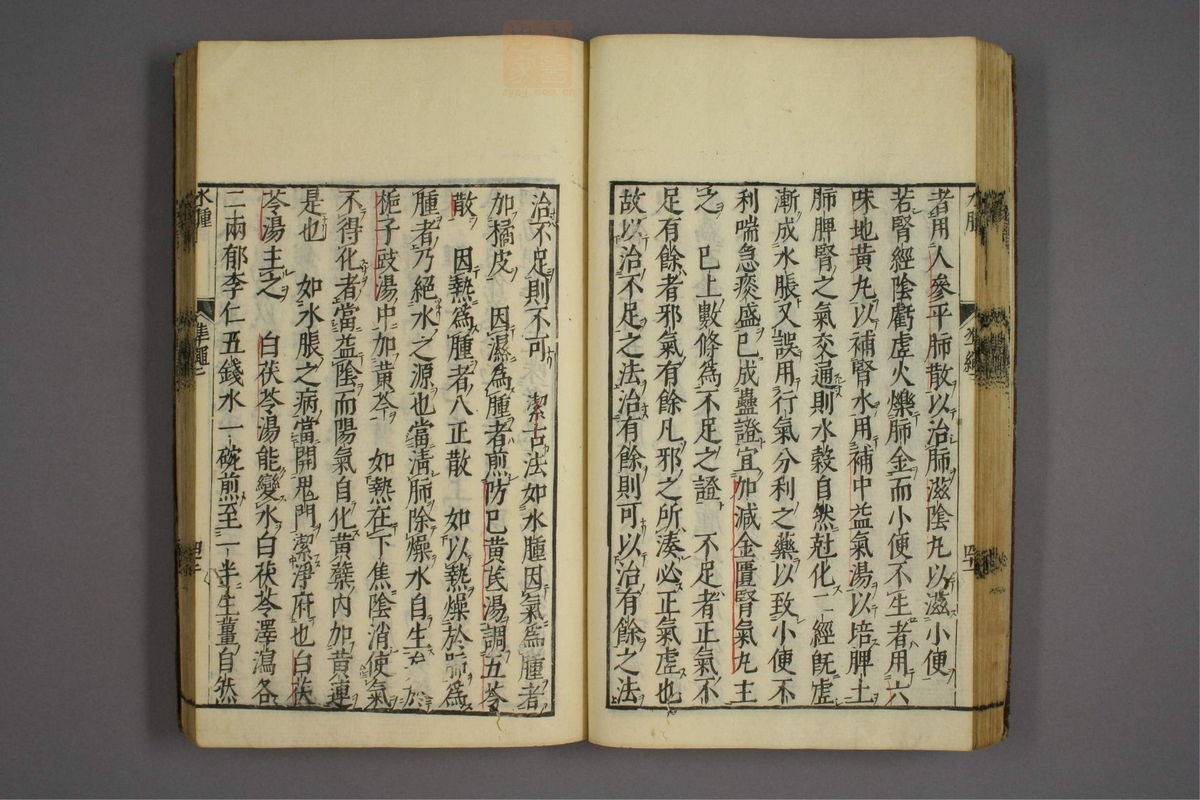 者用人參平肺散以治肺滋陰丸以滋小便
若腎經陰虧虛火爍肺金而小便不生者用六
味地黃丸以補腎水用補中益氣湯以培脾土
肺脾腎之氣交通則水穀自然尅化一經旣虛
漸成水脹又誤用行氣分利之藥以致小便不
利喘急痰盛已成蠱證宜加減金匱腎氣丸主
之 已上數條爲不足之證 不足者正氣不
足有餘者邪氣有餘凡邪之所湊必正氣虛也
故以治不足之法治有餘則可以治有餘之法
治不足則不可 潔古法如水腫因氣爲腫者
加橘皮 因濕爲腫者煎防已黃芪湯調五苓
散 因熱爲腫者八正散 如以熱燥於肺爲
腫者乃絕水之源也當淸肺除燥水自生 於
梔子豉湯中加黃芩 如熱在下焦陰消使氣
不得化者當益陰而陽氣自化黃蘗內加黃連
是也 如水脹之病當開鬼門潔淨府也白茯
苓湯主之 白茯苓湯能變水白茯苓澤瀉各
二兩郁李仁五錢水一碗煎至一半生薑自然
水腫 準繩 四十